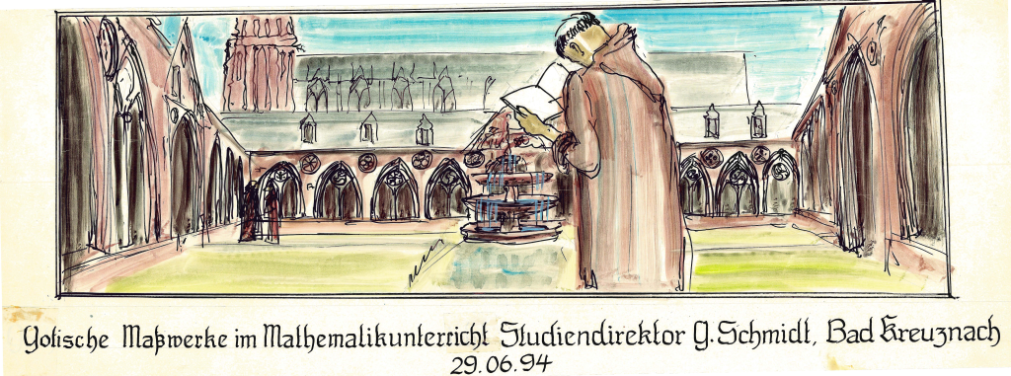 Gotische Maßwerke im Mathematikunterricht Studiendirektor G. Schmidt, Bad Kreuznach
29.06.94